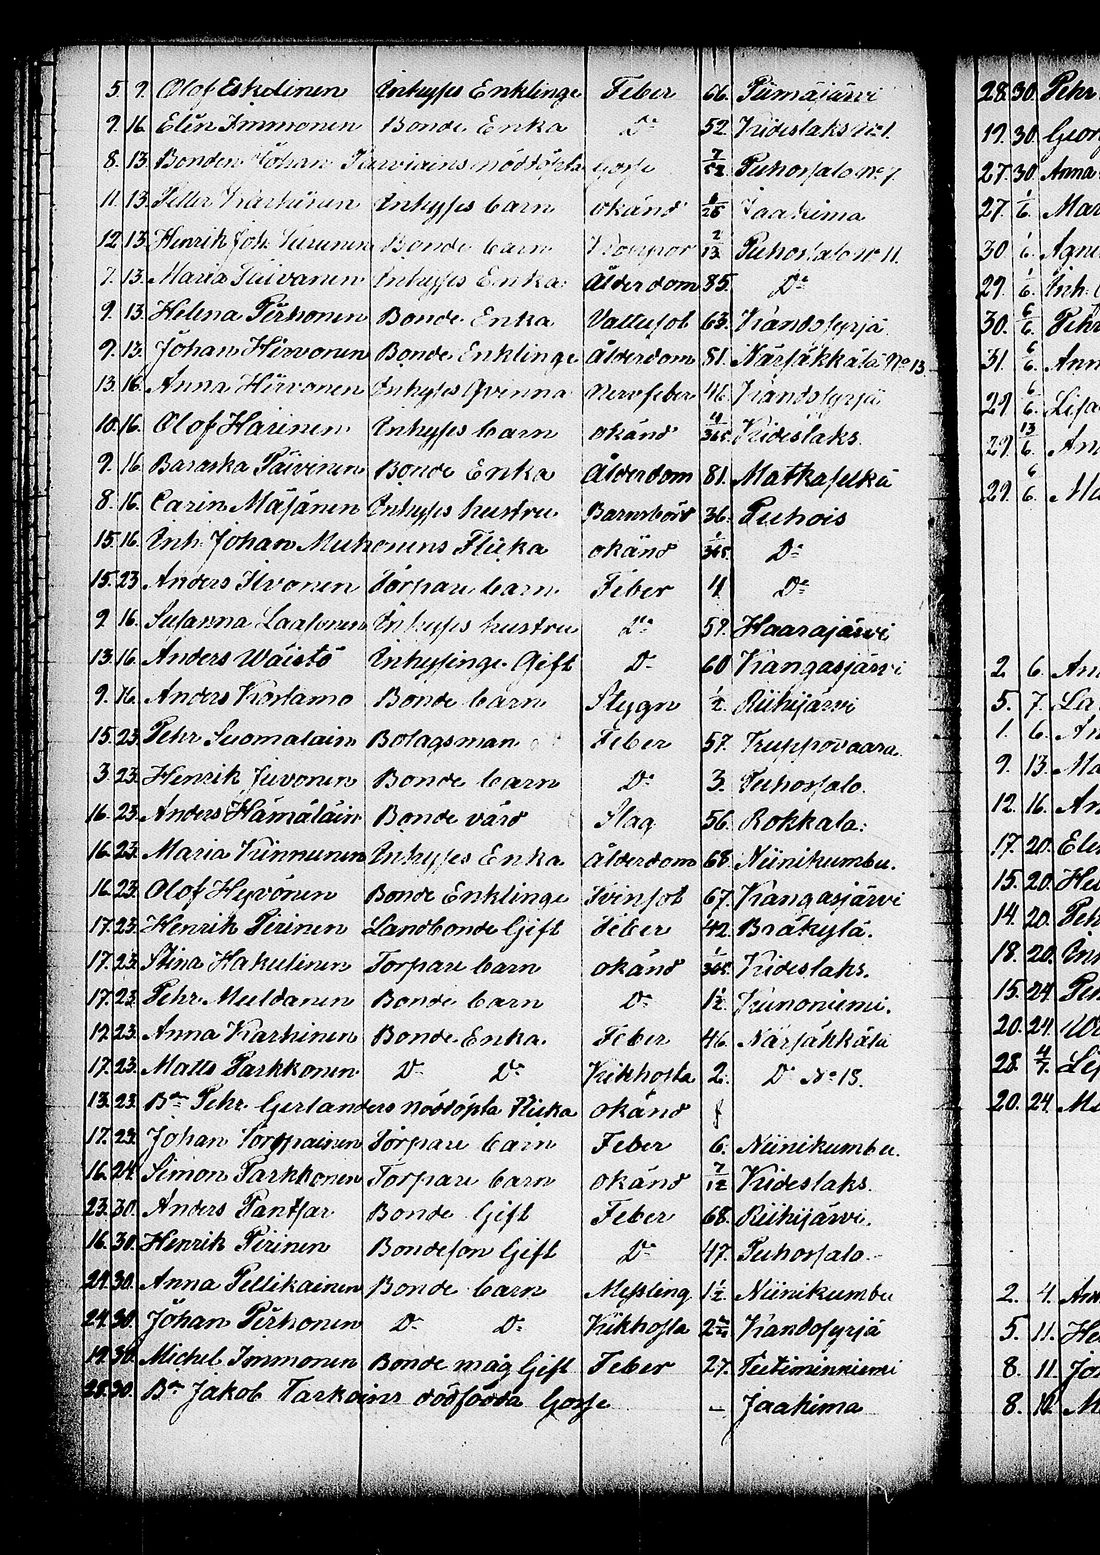 5. 9. Olof Eskelinen Inhyses Enklinge Feber 66. Piimäjärvi
9. 16. Elin Immonen Bonde Enka Do 52 Kideslaks No 1.
8. 13. Bonden Johan Turviains nödöpta gosse 7/52 Puhossalo No 7.
11. 13. Petter Karhunen Inhyses barn okänd Jaakima
12. 13. Henrik Joh. Turunen Bonde barn Koppor 2/13 Puhossalo No 11.
7. 13. Maria Teivanen Inhyses Enka Ålderdom 85. Do
9. 13. Helena Pirhonen Bonde Enka Vattusot 63. Kandosyrjä
9. 13. Johan Hirvonen Bonde Enklinge Ålderdom 81. Närsäkkälä No 13
13. 16. Anna Hirvonen Inhyses Qvinna Nervfeber 46. Kandosyrjä
10. 16. Olof Harinen Inhyses barn okänd 4/365 Kideslaks.
9. 16. Baraska Päivinen Bonde Enka Ålderdom 81. Matkaselkä
8. 16. Carin Mäjänen Inhyses hustru Barnsbörd 36. Puhois
15. 16. Inh. Johan Muhonens Flicka okänd 1/365 Do
15. 23 Anders Ilvonen Torpare barn Feber 4 Do
9. 16. Susanna Laatonen Inhyses hustru Do 59. Haarajärvi
13. 16. Anders Wäistö Inhysinge Gift Do 60 Kangasjärvi
9. 16. Anders Kortamo Bonde barn Stygn 1/2 Riihijärvi
15. 23. Pehr Suomalain Bolagsman Feber 57. Kruppovaara.
3. 23. Henrik Juvonen Bonde barn Do 3. Puhossalo.
16. 23. Anders Hämäläin Bonde värd Slag 56. Rokkala.
16. 23. Maria Kinnunen Inhyses Enka Ålderdom 68. Niinikumbu.
16. 23. Olof Heyvönen Bonde Enklinge Tvinsot 67. Kangasjärvi
17. 23. Henrik Pirinen Landbonde Gift Feber 42. Bräkylä.
17. 23. Stina Hakulinen Torpare barn okänd 1/365 Kideslaks.
17. 23. Pehr Muldanen Bonde barn Do 1 1/2 Kunoniemi.
17. 23. Anna Karhinen Bonde Enka Feber 46. Närsäkkälä
17. 23. Matts Parkkonen Do Do Kikhosta 2. Do No 13.
13. 23. Bn Pehr Gerlanders nödöpta Flicka okänd
17. 23. Johan Torppainen Torpare barn Feber 6. Niinikumbu.
16. 24. Simon Parkkonen Torpare barn okänd 7/12 Kideslaks.
23. 30. Anders Pantsar Bonde Gift Feber 68. Riihijärvi.
16. 30. Henrik Pirinen Bondeson Gift Do 47. Puhossalo.
29. 30. Anna Pellikainen Bonde barn Messling 1 1/2 Niinikumbu
24. 30. Johan Pirhonen Do Do Kikhosta Kandosyrjä
19. 30. Michel Immonen Bonde måg Gift Feber 27. Teitiminniemi
28. 30. Bn Jakob Tarkains dödfödda Gosse – Jaakima
28. 30. Pehr
19. 30. Geor
27. 30. Anna
27. 1/6. Mar
30 1/6. Agne
29. 1/6. Inh.
30. 6/6. Pehr
31. 6/6. Ann
29 6/6. Lisa
29. 13/6. An
29. 6/6. Ma
2. 6. An
5. 7. La
1. 6. An
9. 13. Ma
12. 16. An
17. 20. Elin
15. 20. He
14. 20. Pehr
18. 20. Inh
15. 24. Pe
20. 24.
28. 4/7.
20. 24. Ma
2. 4. And
5. 11. He
8. 11. Jo
8. 12. M